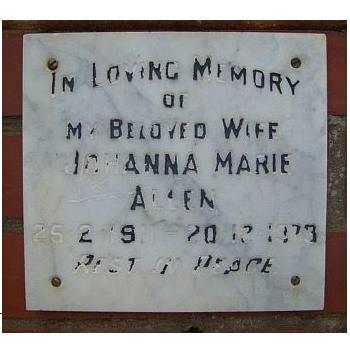 IN LOVING MEMORY
OF
MY BELOVED WIFE
JOHANNA MARIE
ALLEN
20.12.1973
REST IN PEACE